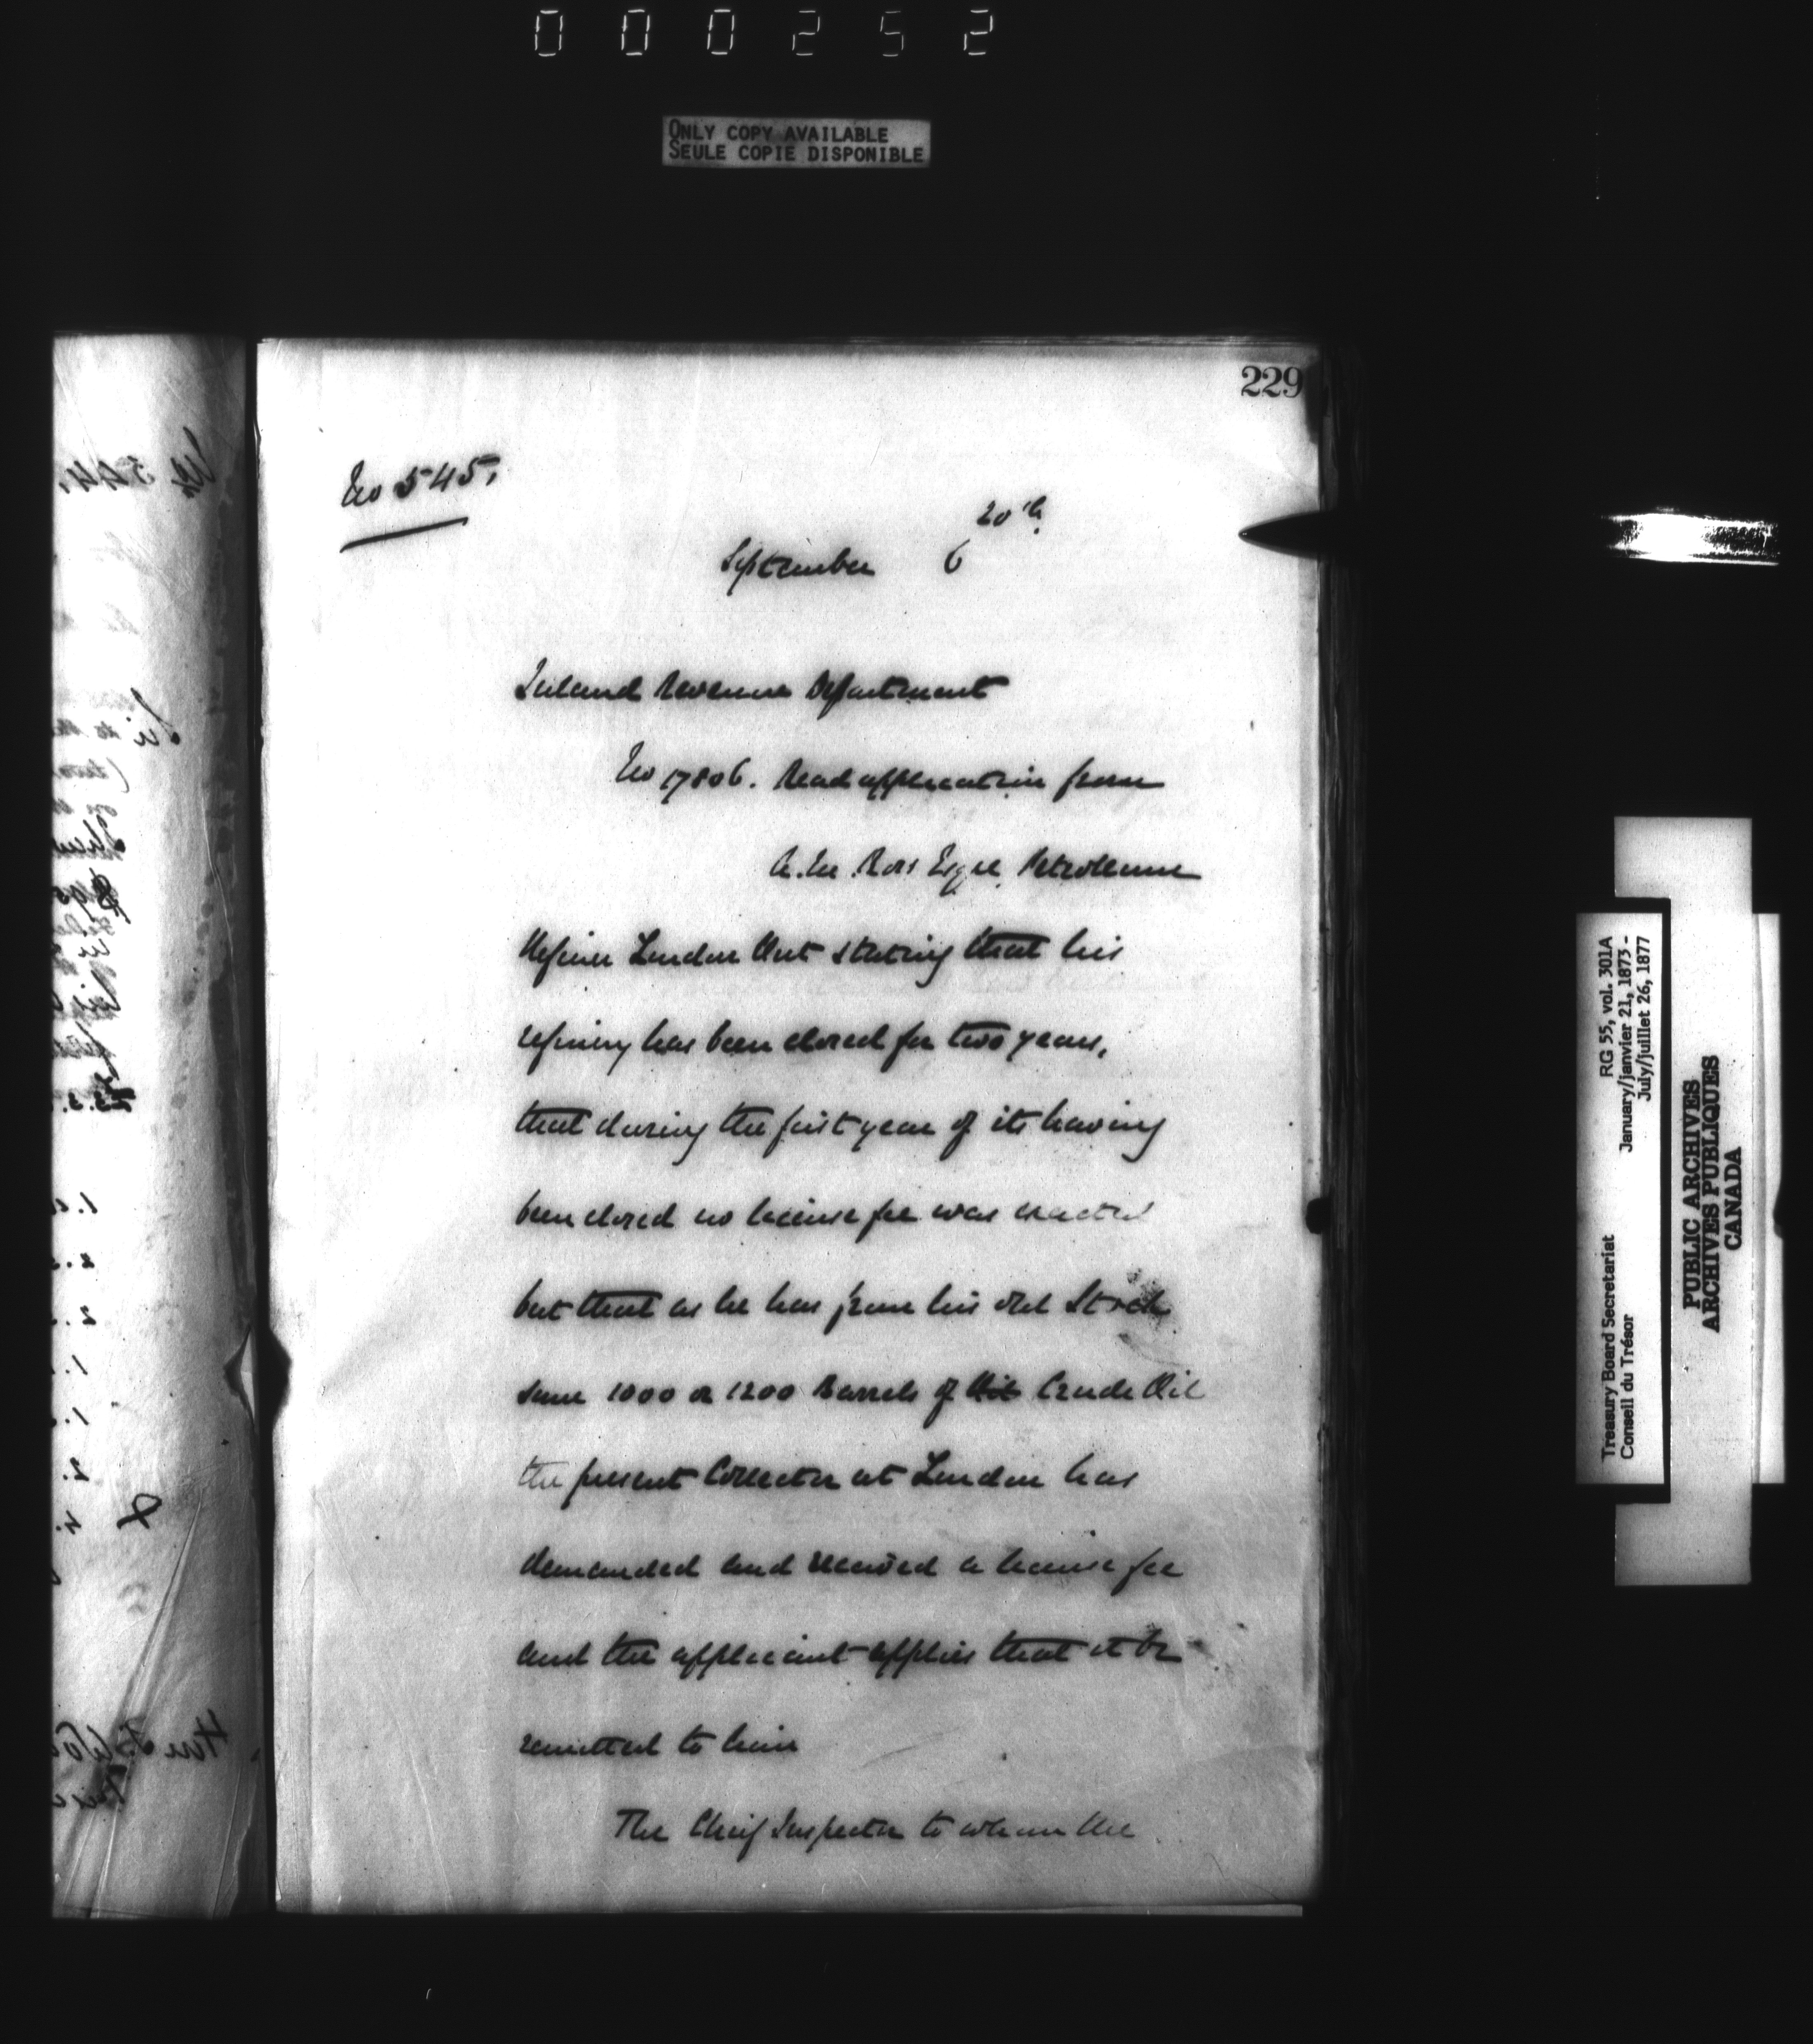 000252
ONLY COPY AVAILABLE
SEULE COPIE DISPONIBLE
229
No 545.
20th
September 6
Inland Revenue Department
No 17806. Read application from
Ross Esqre Petroleum
Refiner London Ont stating that his
refinery has been closed for two years,
that during the first year of its having
been closed no license fee was exacted
but that as he has from his old Stock
some 1000 or 1200 Barrels of Oil Crude Oil
the present Collector at London has
demanded and received a license fee
and the applicant applies that it be
remitted to him
The Cheif Inspector to whom the
Treasury Board Secretariat RG 55, vol. 301A
Conseil du Trésor January/janvier 21, 1873 -
July/juillet 26, 1877
PUBLIC ARCHIVES
ARCHIVES PUBLIQUES
CANADA